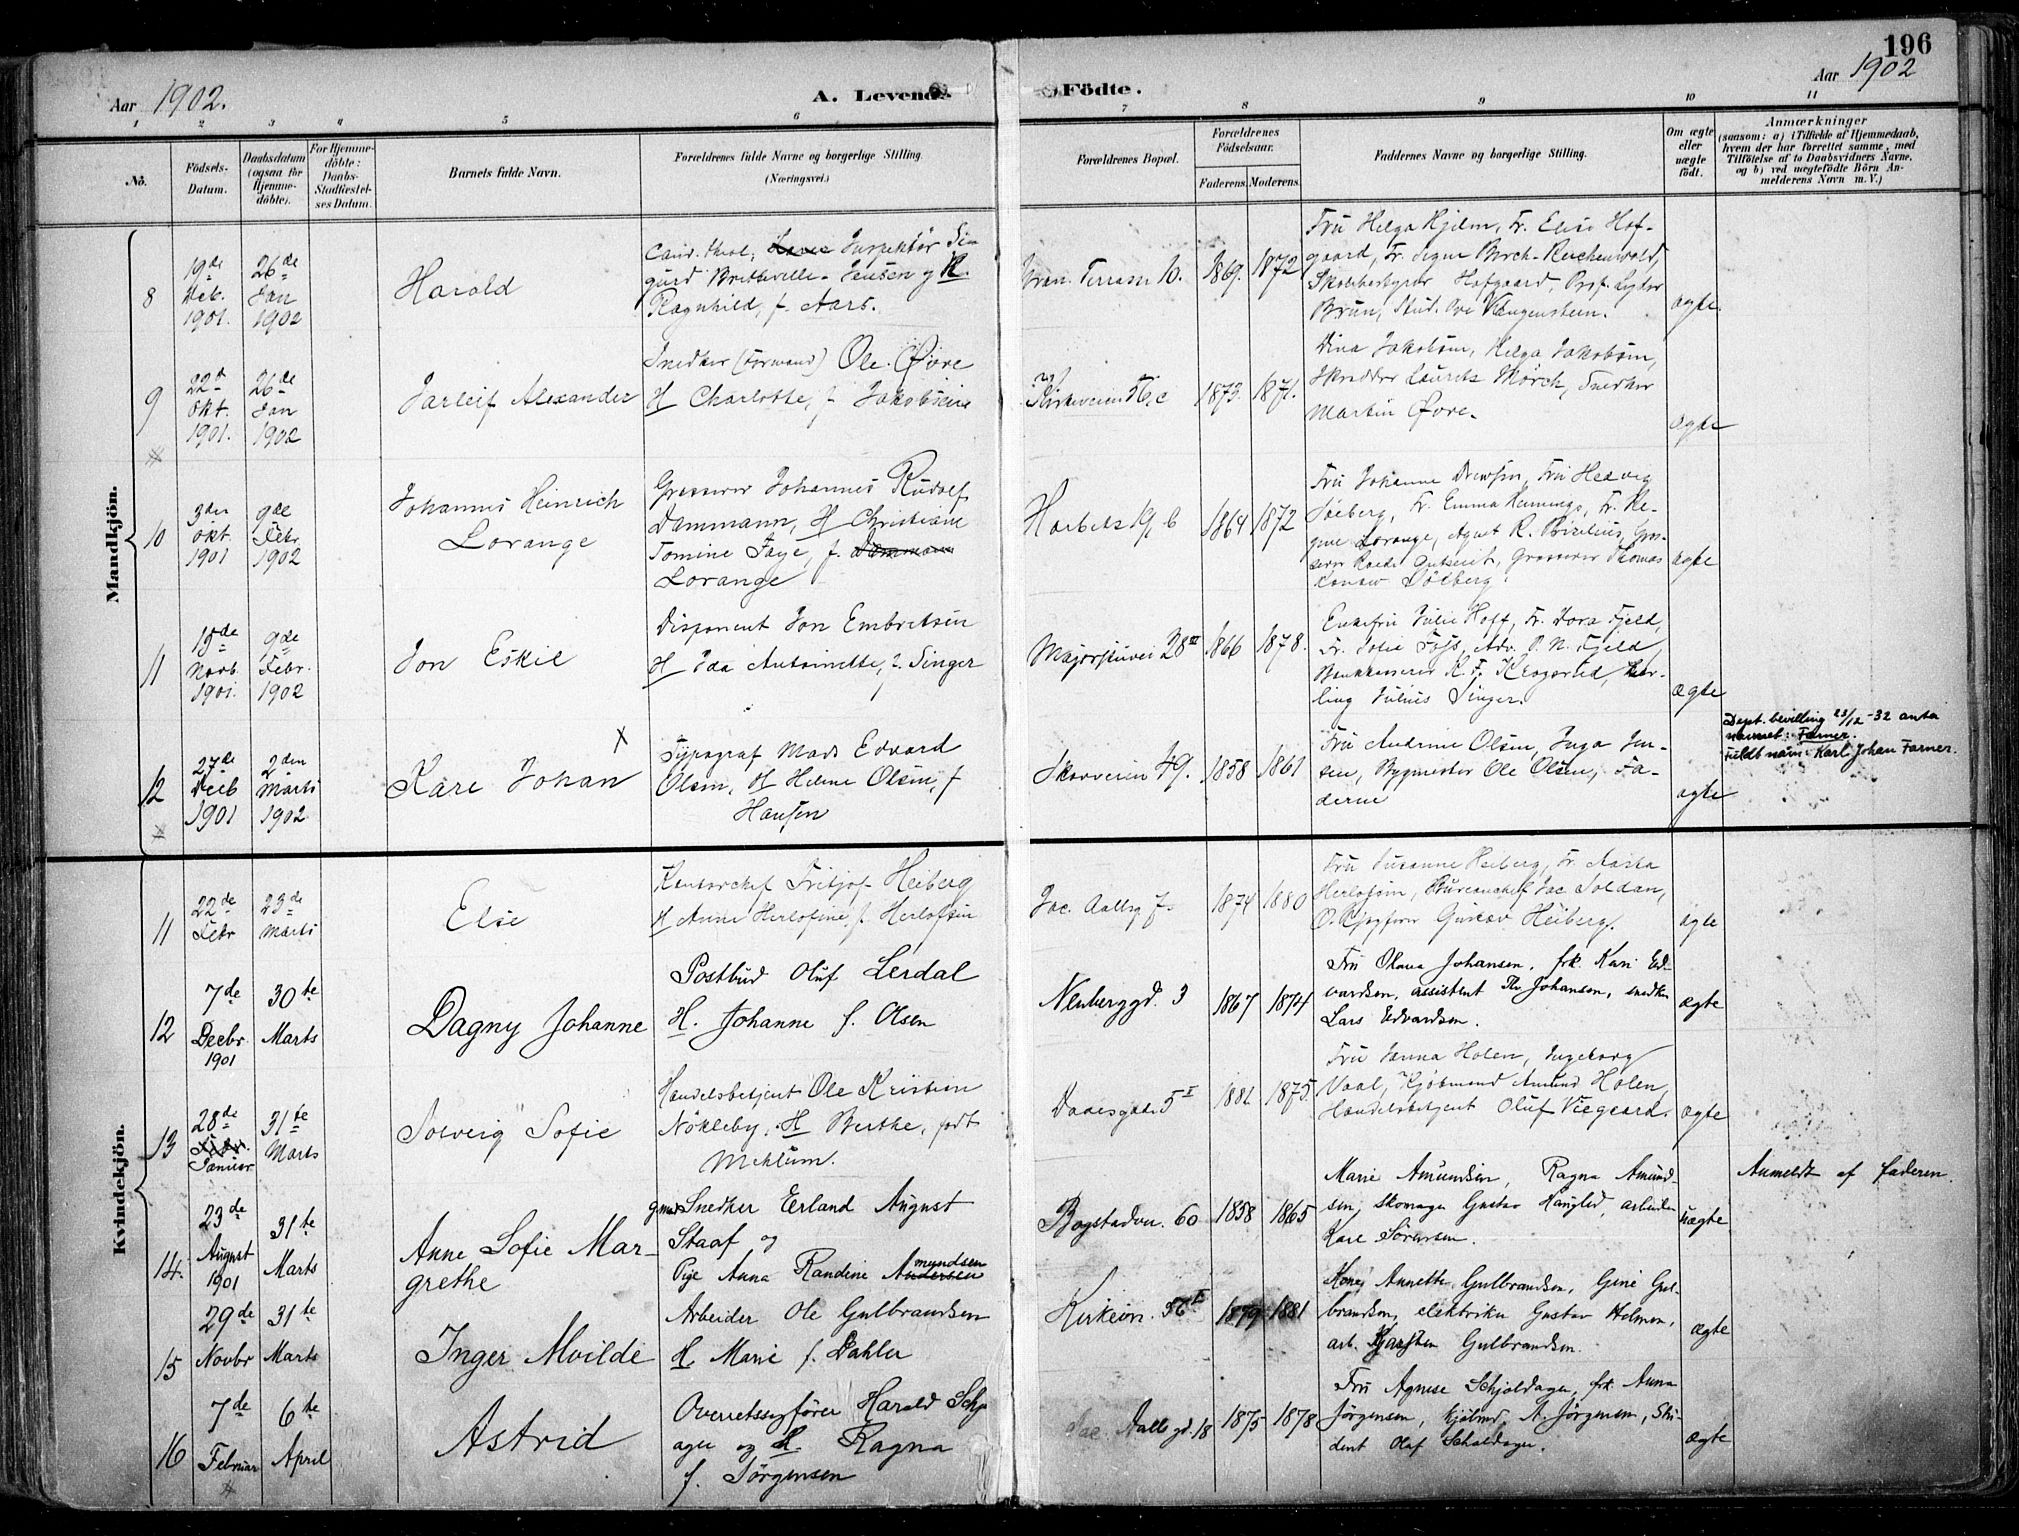 196
Aar 1902.
A. Levende
Födte.
Aar 1902
1 2 3 4 5 6 7 8 9 10 11
No.
Födsels-
Datum.
Daabsdatum
(ogsaa for
Hjemme-
döbte).
For Hjemme-
döbte:
Daabs-
Stadfæstel-
ses Datum.
Barnets fulde Navn.
Forældrenes fulde Navne og borgerlige Stilling.
(Næringsvei.)
Forældrenes Bopæl.
Forældrenes
Födselsaar.
Faderens. Moderens.
Faddernes Navne og borgerlige Stilling.
Om ægte
eller
uægte
födt.
Anmærkninger
(saasom: a) i Tilfælde af Hjemmedaab,
hvem der har forrettet samme, med
Tilföielse af to Daabsvidners Navne,
og b) ved uægtefödte Börn An-
melderens Navn m. V.)
Mandkjön.
8
19de
Deb.
1901.
26de
Jan
1902
Harold
Cand. theol, Inspektör Si
gurd Bretteville-Jensen g R.
Ragnhild, f. Aars.
Terrasse 10.
1869. 1872
Fru Helga Hjelm, Fr. Elise Hof-
gaard, Fr. Signe Birch-Reichenwald,
Skolebestyrer Hofgaard, Prof. Lyder
Brun, Stud. Ove Vangensteen.
ægte.
9
22d
Okt.
1901.
26de
Jan
1902
Jarleif Alexander
Snedker (Formand) Ole Øvre
H Charlotte, f. Jakobsen
Kirkeveien 56, c
1873. 1871.
Dina Jakobsen, Helga Jakobsen,
Skrædder Laurits Mörch, Snedker
Martin Øvre.
ægte
10
3den
Okt.
1901
9de
Febr
1902
Johannes Heinrich
Lorange
Grosserer Johannes Rudolf
Dammann, H Christiane
Tomine Faye, f. Dammann
Lorange
Harbitz 19, b
1864 1872
Fru Johanne Drewsen, Fru Hedvig
Söeberg, Fr. Emma Hennings, Fr. Re-
gine Lorange, Agent R. Sibelius, Gros-
serer Thomas
Söeberg.
ægte
11
15de
Novb.
1901.
9de
Febr.
1902
Jon Eskil
Disponent Jon Embretsen
H Ida Antoinette, f. Singer
Majorstuvei 28III
1866 1878.
Enkefru Julie Hoff, Fr. Dora Fjeld,
Fr. Sofie Foss, Adv. P. N. Fjeld,
Bankkasserer K. F. Krogsrud,
ling Julius Singer.
ægte
12
27de
Decb
1901
2den
Marts
1902.
Kåre Johan
X
Typograf Mads Edvard
Olsen, H Helene Olsen, f
Hansen
Skovveien 49.
1858 1861
Fru Andrine Olsen, Inga Jen-
sen, Bygmester Ole Olsen, Fa-
deren
ægte
Dept. bevilling 23/12-32 anta
navnet: Farner.
Fuldt navn: Karl Johan Farner.
Kvindekjön.
11
22de
Febr
23de
Marts
Else
Kontorchef Fritjof Heiberg
H Anne Herlofine, f. Herlofsen
Jac. Aallsg 7.
1874 1880
Fru Susanne Heiberg, Fr. Aasta
Herlofsen, Bureauchef Jac Soldan,
O. Rsagförer Gustav Heiberg.
ægte
12
7de
Decbr
1901
30te
Marts
Dagny Johanne
Postbud Oluf Lerdal
H. Johanne f. Olsen
Neuberggd. 3
1867 1874
Fru Olava Johansen, frk. Kari Ed-
vardsen, assistent Th. Johansen, snedker
Lars Edvardsen.
ægte
13
28de
Januar
31te
Marts
Solveig Sofie
Handelsbetjent Ole Kristian
Nökleby, H Berthe, födt
Mehlum.
Daaesgade 5I
1881 1875.
Fru Janna Holen, Ingeborg
Vaal, Kjöbmand Amund Holen,
Handelsbetjent Oluf Viegaard.
ægte
14.
23de
August
1901
31te
Marts
Anne Sofie Mar-
grethe
gmd Snedker Eerland August
Staaf og
Pige Anna Randine Amundsen
Bogstadvei. 60
1858 1865
Marie Amundsen, Ragna Amund-
sen, Skomager Gustav Hanglid, arbeider
Kare Sörensen.
uægte
Anmeldt af faderen.
15
29de
Novbr
31te
Marts
Inger Alvilde
Arbeider Ole Gulbrandsen
H. Marie f. Dahler
Kirkevn. 56I
1879 1881
Kone Annette Gulbrandsen, Gine Gul-
brandsen, elektriker Gustav Helmen,
arb. Karsten Gulbrandsen.
ægte
16
7de
Februar
6te
April
Astrid
Overretssagförer Harald Schj
ager og H. Ragna
f. Jörgensen
Jac. Aalls gd. 18
1875 1878
Fru Agnese Schjoldager, frk. Anna
Jörgensen, kjöbmd. A. Jörgensen, Stu-
dent Olaf Schjoldager.
ægte